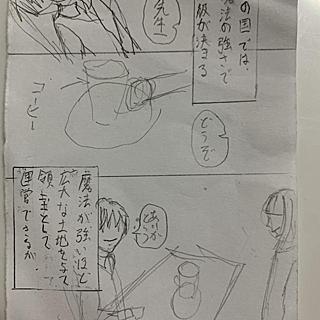 の国では、
魔法の強さで
級が決まる
先生
どうぞ
コーヒー
ありがとう
魔法が強いほど
広大な土地を与えて
領主として
運営できるが、